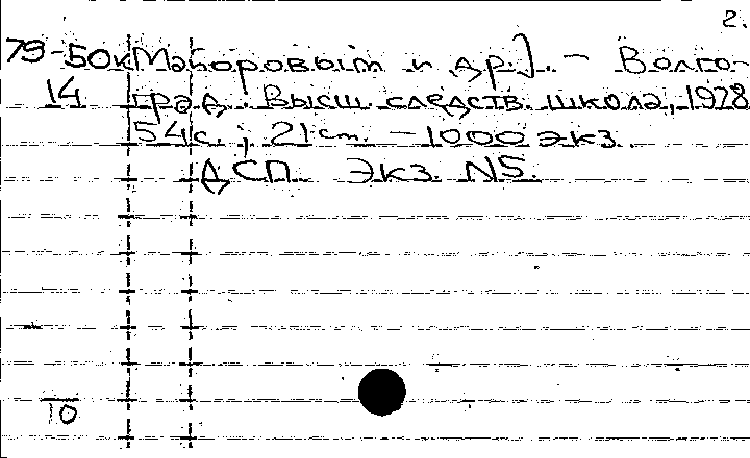 2.
79-50к Майоровым и др.]. - Волго-
14 град. Высш. следств. школа, 1978
54 с.; 21 cm. - 1000 экз.
ДСП. Экз. N5.
10